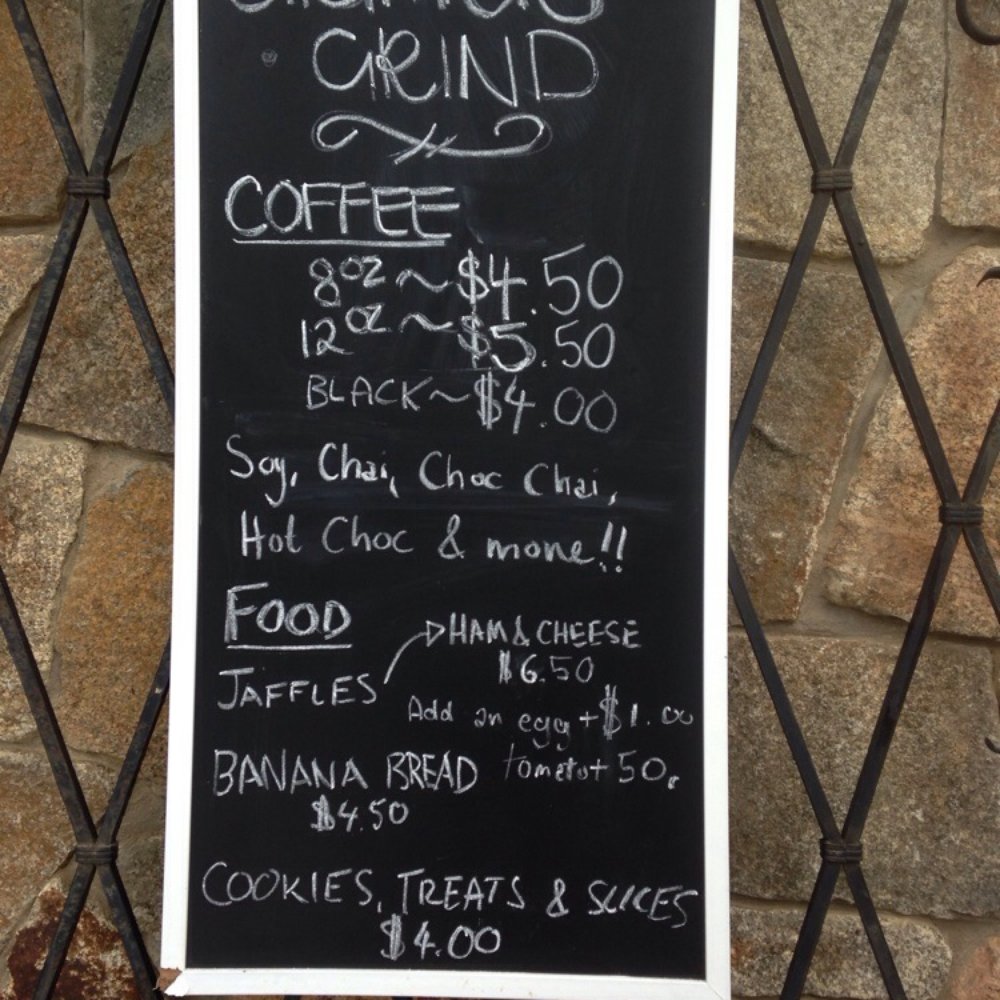 GRIND
COFFEE
8oz ~ $4.50
12oz ~ $5.50
BLACK ~ $4.00
Soy, Chai, Choc Chai,
Hot Choc & more!!
FOOD
HAM & CHEESE
$6.50
JAFFLES
Add an egg + $1.00
tomato + 50c
BANANA BREAD
$4.50
COOKIES, TREATS & SLICES
$4.00